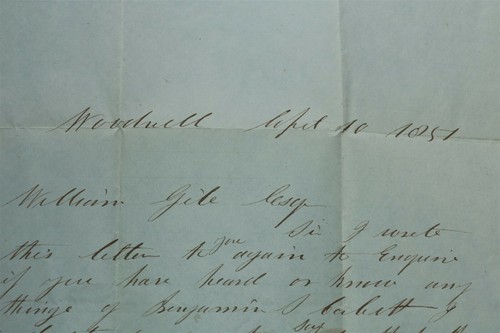 Woodwell April 10 1851
William Gile Esq
Sir I wrote
this letter to you again to Enquire
if you have heard or know any
things of Benjamin S
say